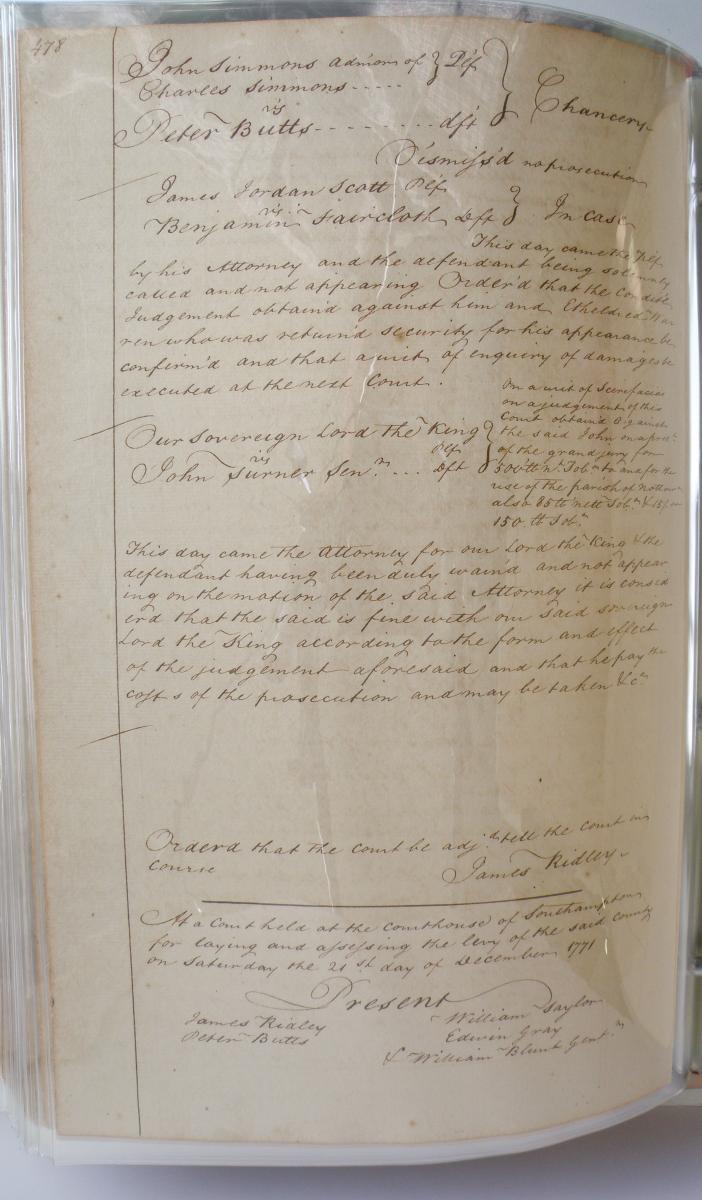 478
John Simmons Admors of } Plf
Charles Simmons - - - - -
vs } Chancery
Peter Butts - - - - - - - - - dft
Dismiss'd no prosecution
James Jordan Scott Plf
vs } In case
Benjamin Faircloth Dft
This day came the Plf
by his Attorney and the defendant being solemnly
called and not appearing Order'd that the Condit.
Judgement obtain'd against him and Etheldred War
ren who was return'd security for his appearance be
confirm'd and that a writ of enquiry of damages be
executed at the next Court.
Our sovereign Lord the King
Plf
vs
John Turner Senr. . . . Dft
On a writ of Scirefacias
on a judgement of this
Court obtain'd against
the said John on a pres.
of the grand jury for
500 tt nt. Tobo. to and for the
use of the parish of
also 85 tt nett Tobo. & 15/ or
150. tt Tobo.
This day came the Attorney for our Lord the King & the
defendant having been duly warn'd and not appear
ing on the motion of the said Attorney it is consid
erd that the said is fine with our said sovereign
Lord the King according to the form and effect
of the judgement aforesaid and that he pay the
costs of the prosecution and may be taken &c.
Orderd that the court be adjd. tell the court in
course
James Ridley
At a Court held at the courthouse of Southampton
for laying and assessing the levy of the said county
on Saturday the 21st day of December 1771
Present
James Ridley William Taylor
Peter Butts Edwin Gray
& William Blunt Gent.